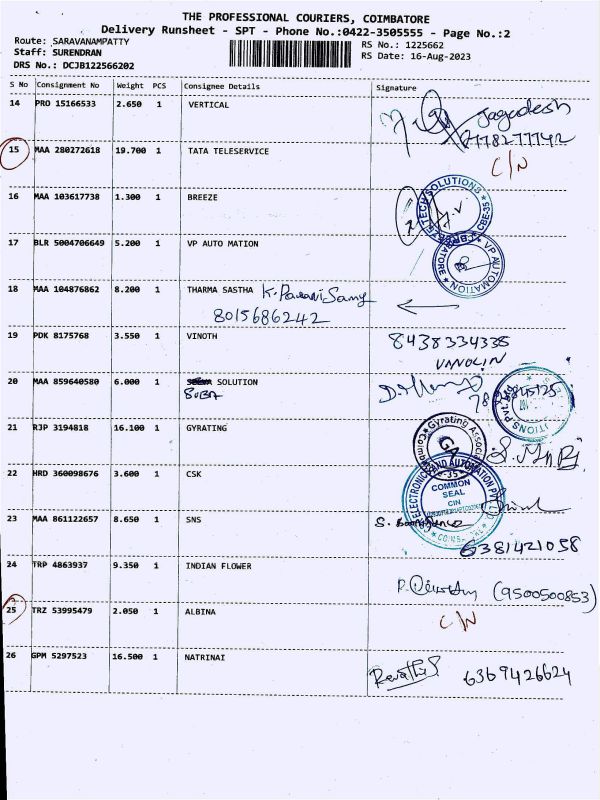 THE PROFESSIONAL COURIERS, COIMBATORE
Delivery Runsheet - SPT - Phone No.:0422-3505555 - Page No.:2
Route: SARAVANAMPATTY
RS No.: 1225662
Staff: SURENDRAN
RS Date: 16-Aug-2023
DRS No.: DCJB122566202
S No Consignment No Weight PCS Consignee Details Signature
14 PRO 15166533 2.650 1 VERTICAL
Jagadesh
15 MAA 280272618 19.700 1 TATA TELESERVICE
C/N
16 MAA 103617738 1.300 1 BREEZE
TECH SOLUTIONS CBE-35
17 BLR 5004706649 5.200 1 VP AUTO MATION
VP AUTOMATION
18 MAA 104876862 8.200 1 THARMA SASTHA
8015686242
19 PDK 8175768 3.550 1 VINOTH
8438334335
20 MAA 859640580 6.000 1 SOLUTION
SUBA
21 RJP 3194818 16.100 1 GYRATING
Gyrating
22 HRD 360098676 3.600 1 CSK
COMMON
SEAL
CIN
23 MAA 861122657 8.650 1 SNS
6381421058
24 TRP 4863937 9.350 1 INDIAN FLOWER
(9500500853)
25 TRZ 53995479 2.050 1 ALBINA
C/N
26 GPM 5297523 16.500 1 NATRINAI
Revathi 6369426624